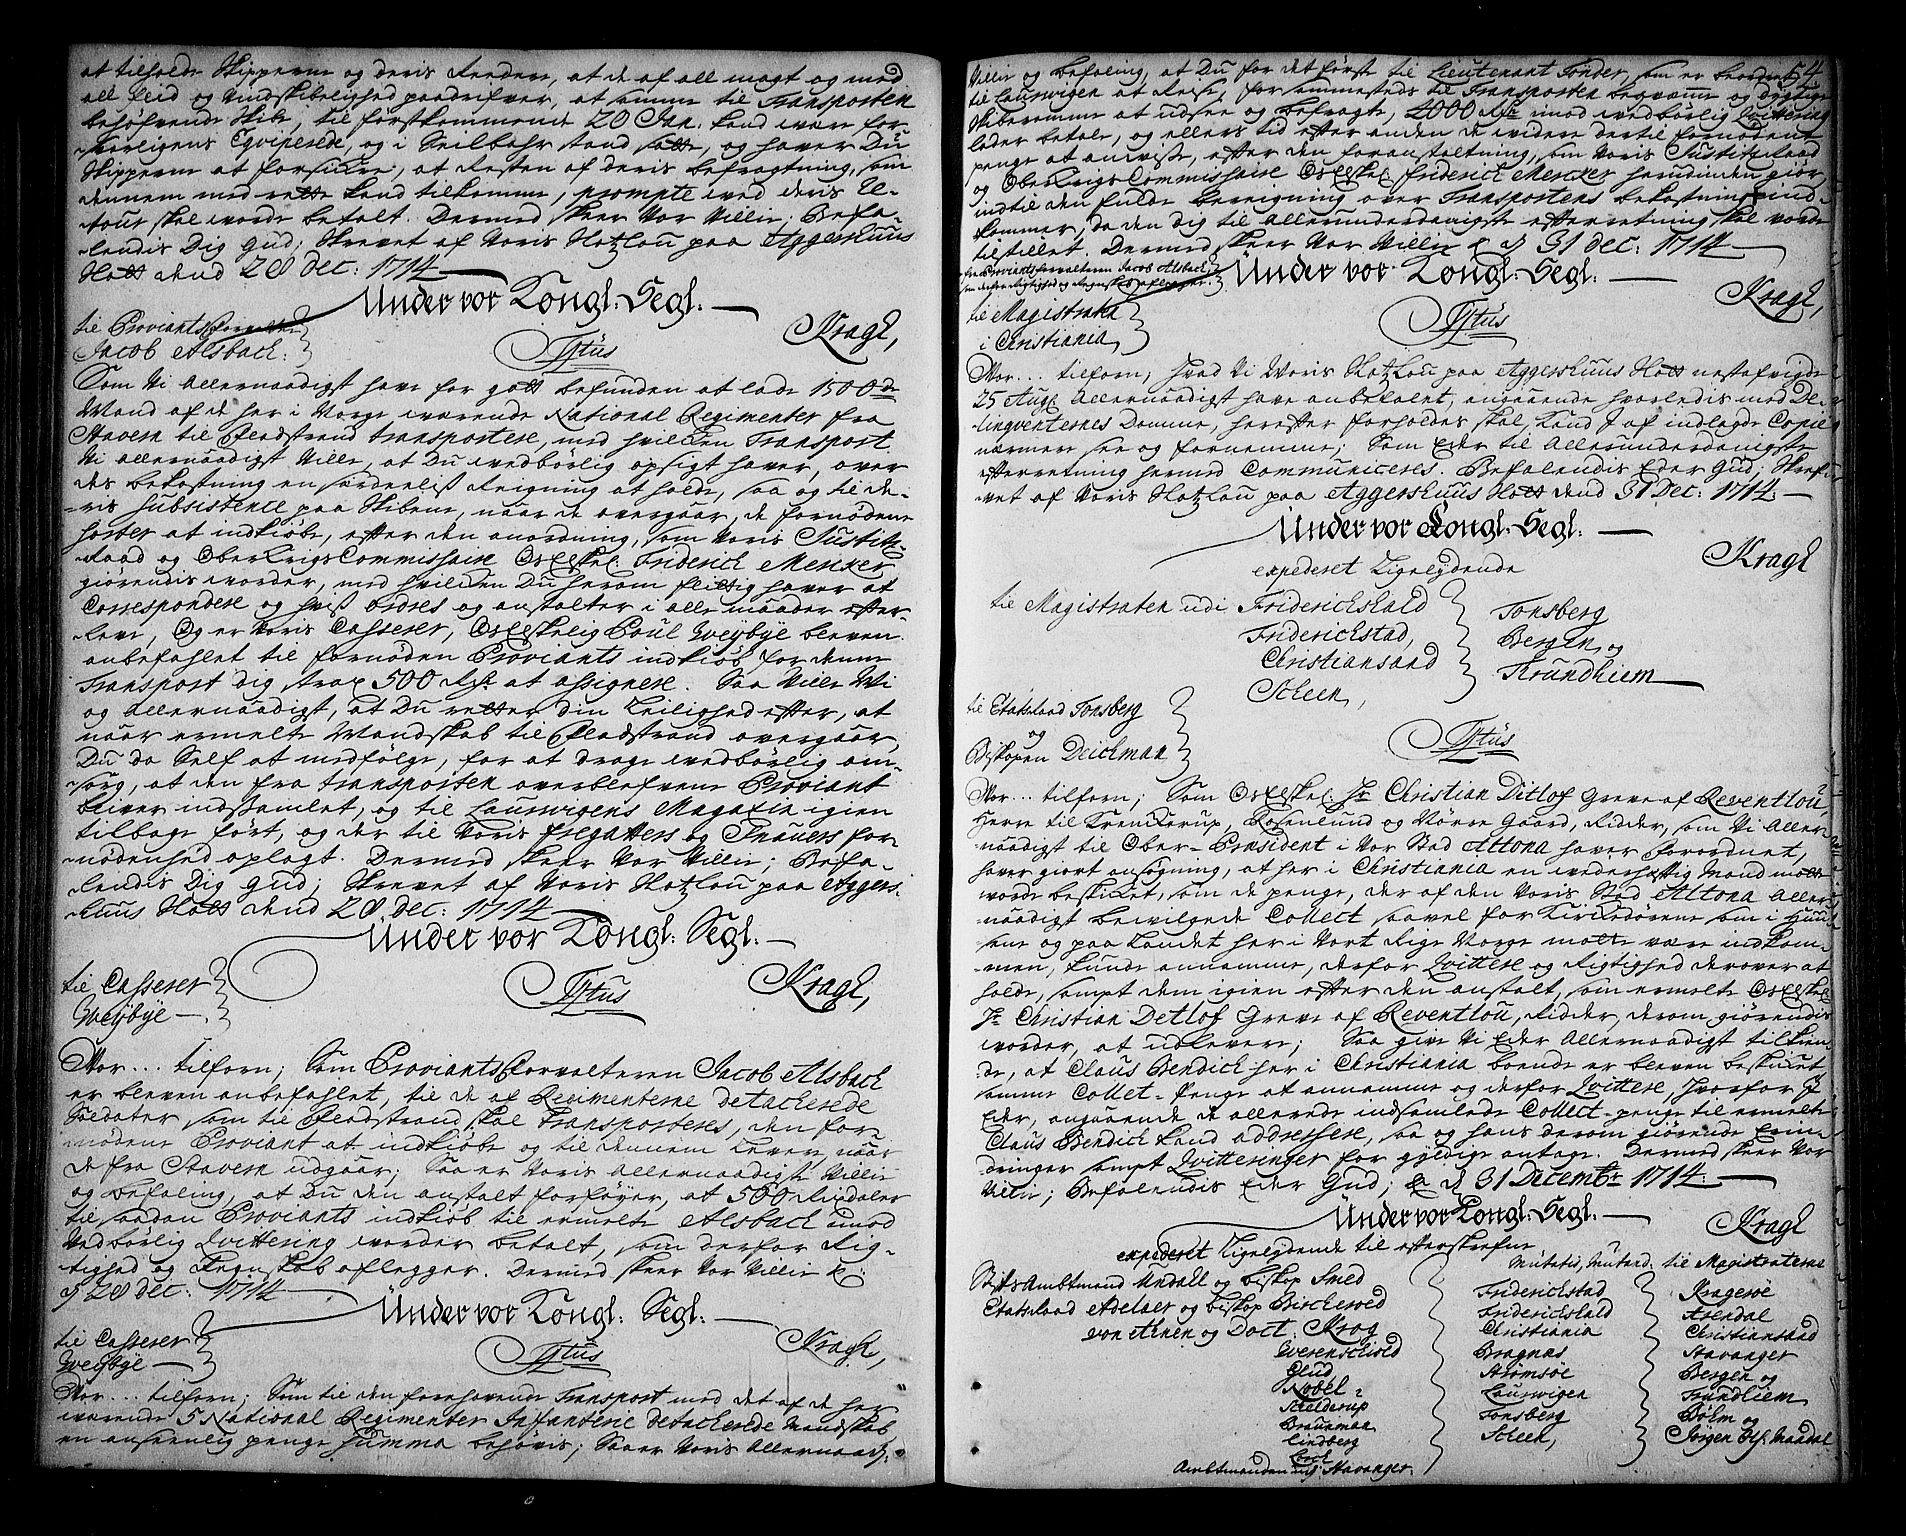 at tilholde Skipperne og deris Reedere, at de af all magt og med
all fliid og Vindskibelighed paadrifver, at samme til Transporten
behøfvende Skibe, til førstkommende 20 Jan. kand være for-
-svarligens Eqviperede, og i Seilbahr stand satte, og haver Du
Skipperne at forsikre, at Resten af deris befragtning, som
dennem med rette kand tilkomme, prompte ved deris Re-
-tour skal worde betalt. Dermed skeer Vor Villie. Befa-
-lendis Dig Gud; Skrevet af Voris Slotzlou paa Aggershuus
Slott dend 28 Dec: 1714
Under vor Kongl: Segl:
til Proviantsforvalter
Jacob Alsbach:
Kragh,
Tytus
Som Vi Allernaadigst have for gott befunden at lade 1500de
Mand af de her i Norge værende National Regimenter fra
Stavern til Fladstrand transportere, med hvilcken Transport
Vi allernaadigst Ville, at Du wedbørlig opsigt haver, over
des bekostning en særdeelis Reigning at holde, saa og til de-
-ris subsistence paa Skibene, naar de overgaar, de fornødene
Poster at indkiøbe, efter den anordning, som Voris Justitz-
-Raad og OberKrigsCommissaire Os Elskel: Friderich Mencker
giørendis worder, med hvilcken Du herom flittig haver at
Correspondere og hvis ordres og anstalter i alle maader efter-
-leve, Og er Voris Casserer, Os Elskelig Poul Weybye bleven
anbefahlet til fornøden Proviants indkiøb for denne
Transport Dig strax 500 Rdr. at assignere. Saa Ville Wi
og Allernaadigst, at Du retter din Leilighed efter, at
naar ermelte Mandskab til Fladstrand overgaar,
Du da Self at medfølge, for at drage wedbørlig om-
-sorg, at den fra transporten overblefvene Proviant
bliver indsamlet, og til Laurwigens Magazin igien
tilbage ført, og der til Voris Fregatters og Snauers for-
-nødenhed oplagt. Dermed skeer Vor Villie; Befa-
-lendis Dig Gud; Skrevet af Voris Slotzlou paa Aggers-
-huus Slott dend 28 Dec: 1714
Under vor Kongl: Segl:
til Casserer
Weybye
Kragh,
Tytus
Vor... tilforn; Som ProviantsForvalteren Jacob Alsbach
er bleven anbefahlet, til de af Regimenterne detacherede
Soldater som til Fladstrand skal Transporteres, den for-
nødene Proviant at indkiøbe og til dennem Levere, naar
de fra Stavern udgaar; Saa er Voris Allernaadigst Villie
og befaling, at Du den anstalt forføyer, at 500 Rixdaler
til saadan Proviants indkiøb til ermelte Alsbach imod
Vedbørlig Qvittering worder betalt, som derfor Rig-
-tighed og Regenskab aflegger. Dermed skeer Vor Villie &c:
d 28 Dec: 1714
Under vor Kongl: Segl:
til Casserer
Weybye
Kragh,
Tytus
Vor... tilforn; Som til den forehavende Transport med det af de her
værende 5 National Regimenter Infanterie detacherede Mandskab
en anseenlig penge Summa behøvis; Saa er Voris Allernaad:
54
Villie og befaling, at Du for det første til Lieutenant Tønder, som er beordret
til Laurwigen at Reise, for sammesteds til Transporten beqvemme og dygtige
Skibrumme at udsee og befragte, 4000 Rdr. imod wedbørlig Qvittering
lader betale, og ellers tid efter anden de widere dertil fornødent
penge at anwise, efter den foranstaltning, som Voris Justitzraad
og OberKrigsCommissaire Os Elskel: Friderich Mencker herudinden giør
indtil den fulde beregning over Transportens bekostning ind-
kommer, da den dig til Allerunderdanigst efterretning skal vorde
tilstillet. Dermed skeer Vor Villie &c d 31 Dec: 1714
Proviantsforvalteren Jacob Alsbach
Under vor Kongl: Segl:
Kragh,
til Magistraten
i Christiania,
Tytus
Vor... tilforn; Hvad Vi Woris Slotzlou paa Aggershuus Slott nestafvigde
25 Aug: Allernaadigst have anbefalent, angaaende hvorledis med De-
linqventernes Domme, herefter forholdes skal, kand I af indlagde Copie
nærmere see og fornemme; Som Eder til Allerunderdanigste
efterretning hermed Communiceres. Befalendis Eder Gud; Skre-
vet af Voris Slotzlou paa Aggershuus Slott dend 31 Dec: 1714:
Under vor Kongl: Segl:
Kragh
expederet Ligelydende
til Magistraten udi Friderichshald
Friderichstad,
Christiansand
Scheen,
Tonsberg
Bergen og
Trundhiem
til Etatsraad Tonsberg
og
Biskopen Deichman
Tytus
Vor... tilforn; Som Os Elskel: Hr Christian Ditlof Greve af Reventlou,
Herre til Krenkerup, Rosenlund og Nørre Gaard, Ridder, som Vi Aller-
naadigst til Ober-Præsident i Vor Stad Altona haver forordnet,
haver giort ansøgning, at her i Christiania en wederhæftig Mand motte
worde beskicket, som de penge, der af den Voris Stad Altona Aller-
naadigst bewilgede Collect saavel for Kirckedørene som i Huus-
sene og paa Landet her i Vort Rige Norge motte være indkom-
-men, kunde annamme, derfor Qvittere og Rigtighed derover at
holde, sampt dem igien efter den anstalt, som ermelte Os Elskel:
Hr Christian Detlof Greve af Reventlou, Ridder, derom giørendis
worder, at udlevere; Saa give Vi Eder Allernaadigst tilkien-
de, at Claus Bendick her i Christiania boende er bleven beskicket
samme Collet-Penge at annamme og derfor Qvittere, hvorfor I
Eder, angaaende de allerede indsamlede Collect-penge til ermelte
Claus Bendick kand addressere, saa og hans derom giørende Erin-
dringer sampt Qvitteringer for gyldige antage. Dermed skeer Vor
Villie; Befalendis Eder Gud; &c d 31 Decembr 1714:
Under vor Kongl: Segl:
Kragh
expederet Ligelydende til efterskrefne
Mutatis Mutand: til Magistraterne
StiftsAmbtmand Undall og biskop Smed
Etatsraad Adelaer og biskop Bircherod
von Ahnen og Doct: Krog
Werenschiold
Glud
Nobel
Stelderup
Bruunman
Lindberg
Ambtmanden udj Stavanger:
Friderichstad
Friderichshald
Christiania
Bragnæs
Strømsøe
Laurwigen
Tonsberg
Scheen,
Kragerøe
Arendal
Christiansand
Stavanger
Bergen og
Trundhiem
Bølm og
Jørgen Ols: Maadal